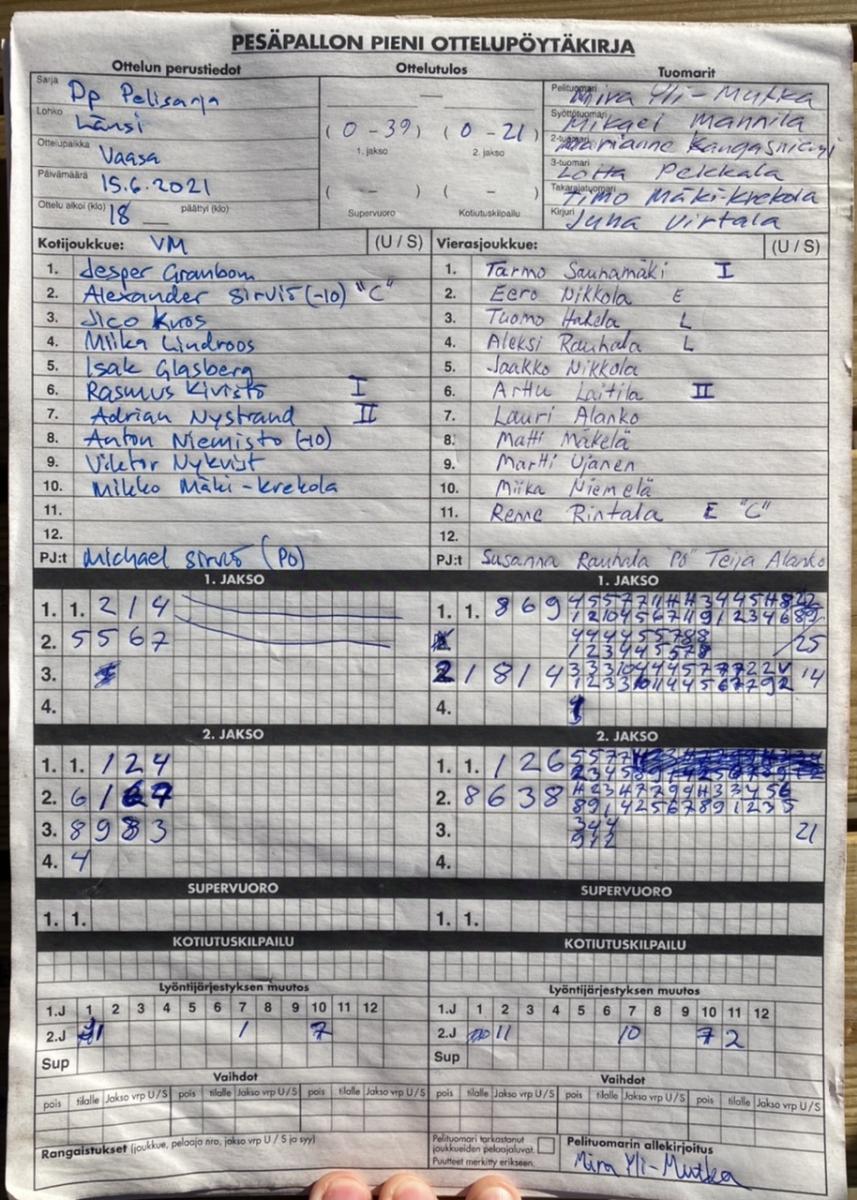 PESÄPALLON PIENI OTTELUPÖYTÄKIRJA
Ottelun perustiedot
Sarja Dp Pelisarja
Lohko Länsi
Ottelupaikka Vaasa
Päivämäärä 15.6.2021
Ottelu alkoi (klo) 18 päättyi (klo)
Ottelutulos
—
( 0 - 39 ) ( 0 - 21 )
1. jakso 2. jakso
( - ) ( - )
Supervuoro Kotiutuskilpailu
Tuomarit
Pelituomari Mira Yli-Mutka
Syöttötuomari Mikael Mannila
2-tuomari Marianne Kangasniemi
3-tuomari Lotta Pekkala
Takarajatuomari Timo Mäki-krekola
Kirjuri Juha Virtala
Kotijoukkue: VM (U / S)
1. Jesper Granbom
2. Alexander Sirviö (-10) "C"
3. Jico Kuos
4. Miika Lindroos
5. Isak Glasberg
6. Rasmus Kivistö I
7. Adrian Nystrand II
8. Anton Niemistö (-10)
9. Viktor Nykvist
10. Mikko Mäki-krekola
11.
12.
PJ:t Michael Sirviö (PO)
Vierasjoukkue: (U / S)
1. Tarmo Saunamäki I
2. Eero Nikkola E
3. Tuomo Hakola L
4. Aleksi Rauhala L
5. Jaakko Nikkola
6. Arttu Laitila II
7. Lauri Alanko
8. Matti Mäkelä
9. Martti Ujanen
10. Miika Niemelä
11. Renne Rintala E "C"
12.
PJ:t Susanna Rauhala "PO" Teija Alanko
1. JAKSO
1. 1. 2 1 4
2. 5 5 6 7
3.
4.
1. JAKSO
1. 1. 8 6 9
25
2 1 8 1 4
14
4.
2. JAKSO
1. 1. 1 2 4
2. 6 1 6 7
3. 8 9 8 3
4. 4
2. JAKSO
1. 1. 1 2 6
2. 8 6 3 8
3. 3 4 4
9 1 2
21
4.
SUPERVUORO
1. 1.
SUPERVUORO
1. 1.
KOTIUTUSKILPAILU
KOTIUTUSKILPAILU
Lyöntijärjestyksen muutos
1.J 1 2 3 4 5 6 7 8 9 10 11 12
2.J 1 7
Sup
Lyöntijärjestyksen muutos
1.J 1 2 3 4 5 6 7 8 9 10 11 12
2.J 11 10 7 2
Sup
Vaihdot
pois tilalle Jakso vrp U / S pois tilalle Jakso vrp U / S pois tilalle Jakso vrp U / S
Vaihdot
pois tilalle Jakso vrp U / S pois tilalle Jakso vrp U / S pois tilalle Jakso vrp U / S
Rangaistukset (joukkue, pelaaja nro, jakso vrp U / S ja syy)
Pelituomari tarkastanut
joukkueiden pelaajaluvat.
Puutteet merkitty erikseen.
Pelituomarin allekirjoitus
Mira Yli-Mutka